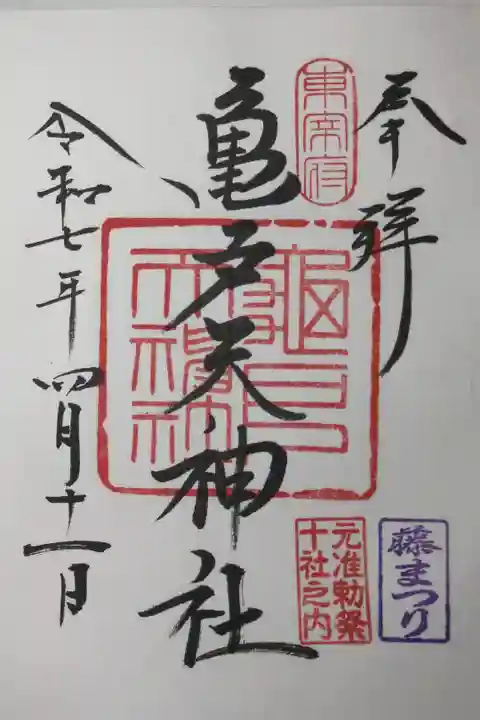 奉拝
東宰府
亀戸天神社
元准勅祭
十社之内
藤まつり
令和七年四月十一日